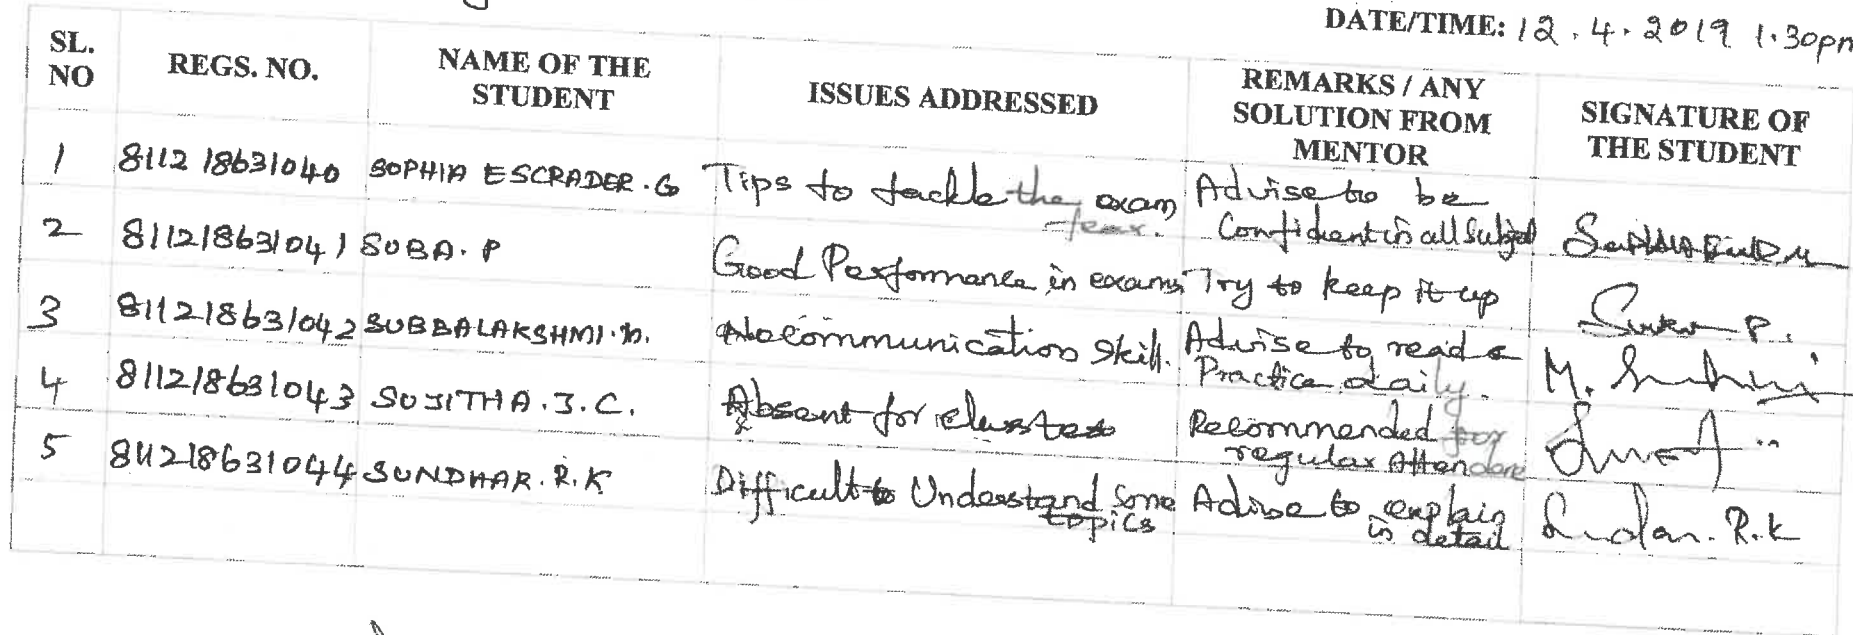 DATE/TIME: 12.4.2019 1.30pm
SL. NO REGS. NO. NAME OF THE STUDENT ISSUES ADDRESSED REMARKS / ANY SOLUTION FROM MENTOR SIGNATURE OF THE STUDENT
1 811218631040 SOPHIA ESCRADER.G Tips to tackle the exam fear. Advise to be Confident in all Subject
2 811218631041 SUBA.P Good Performance in exams Try to keep it up P.
3 811218631042 SUBBALAKSHMI.M. No communication skill. Advise to read & Practice daily. M.
4 811218631043 SUJITHA.J.C. Absent for Recommended for regular Attendance
5 811218631044 SUNDHAR.R.K Difficult to Understand Some topics Advise to explain in detail R.K